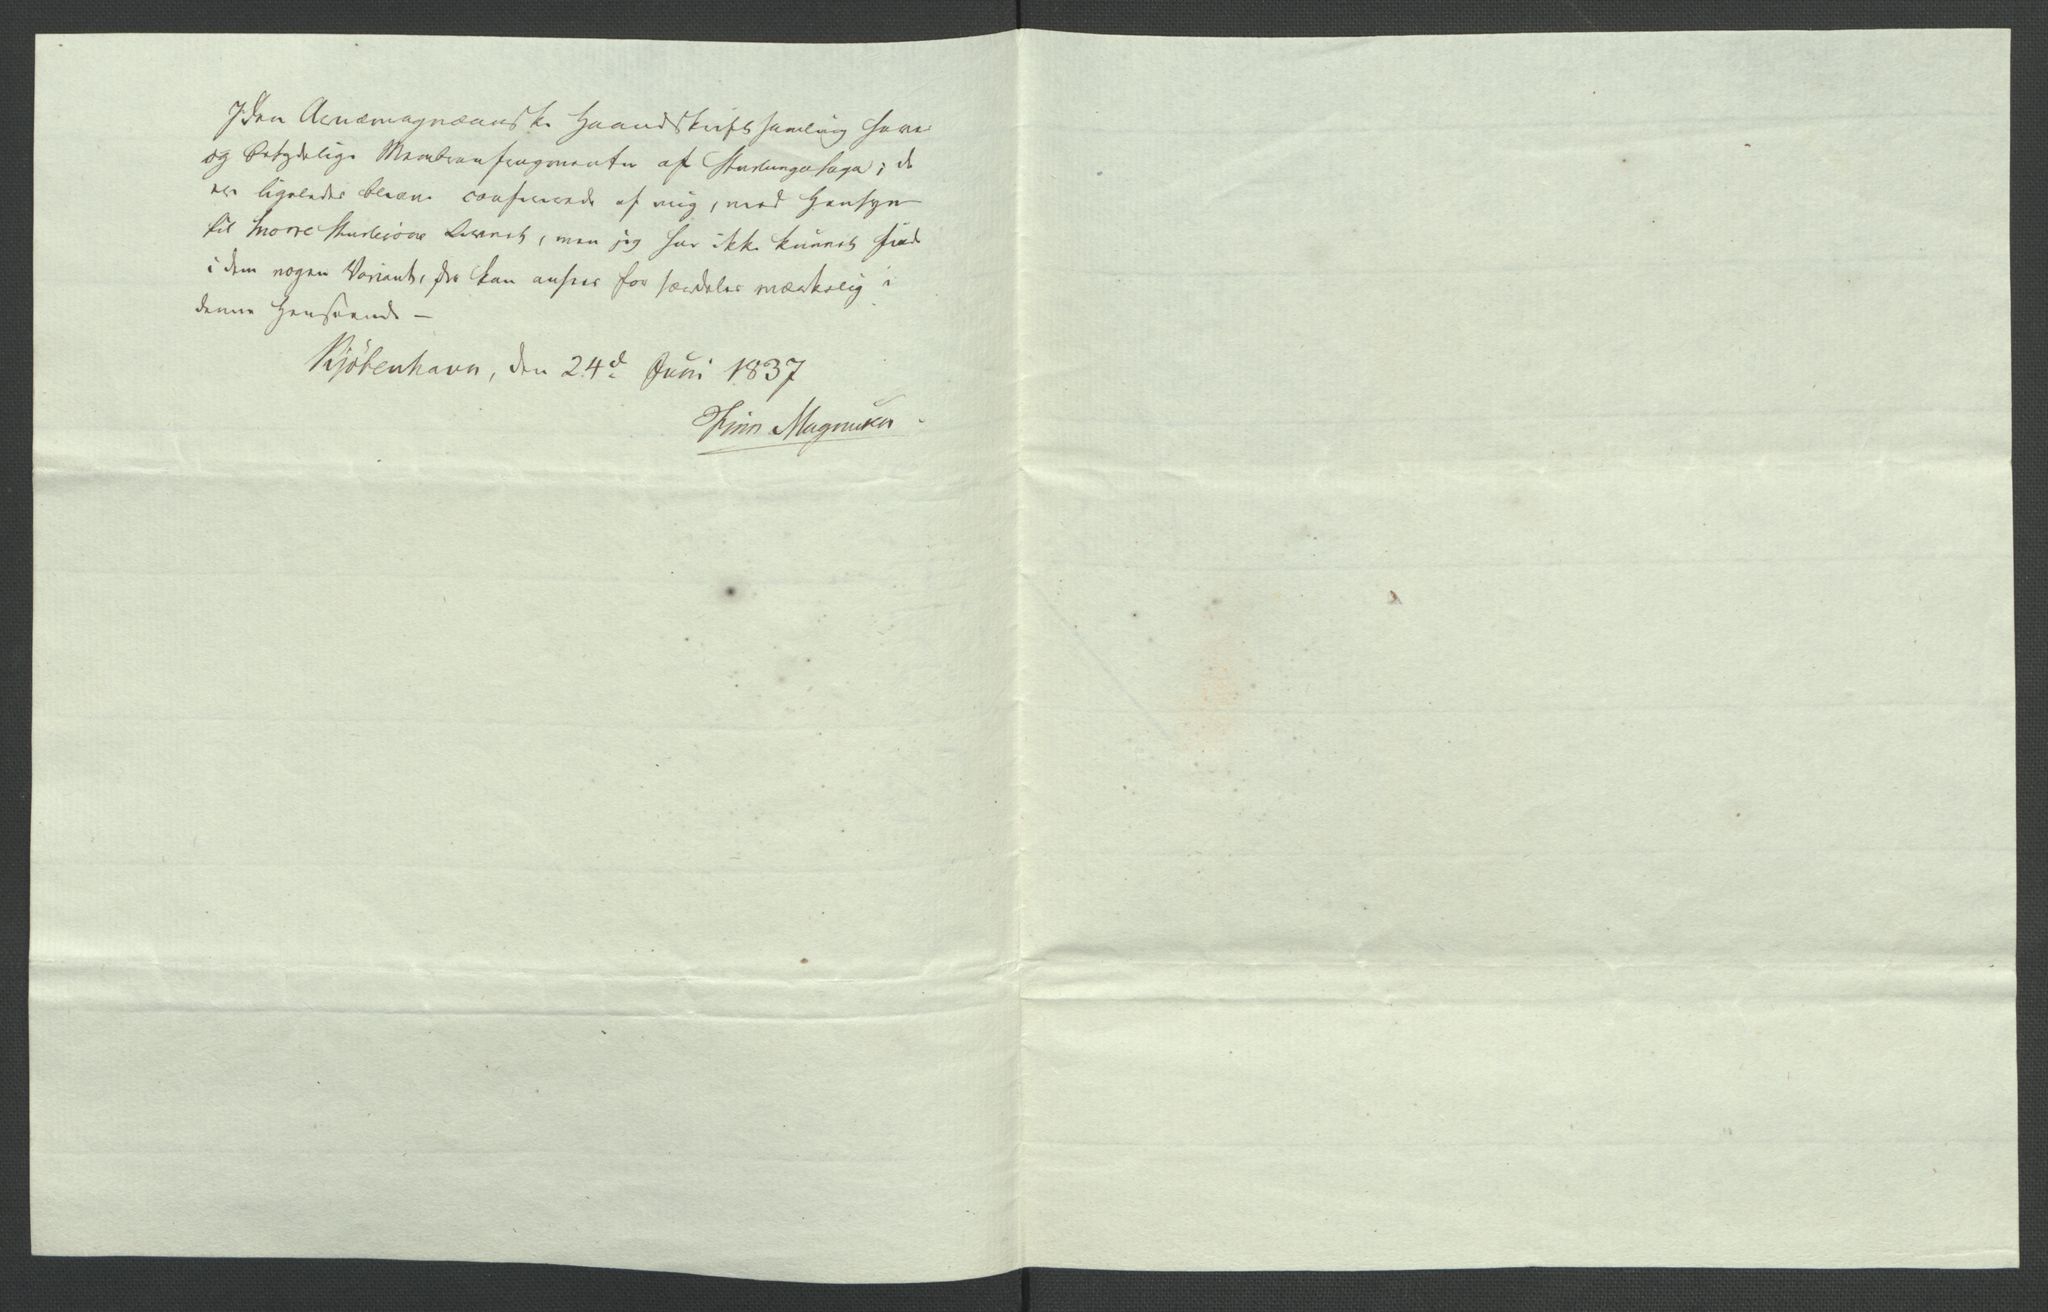 I den Arnæmagnæanske Haandskriftsamling haves
og betydelige Membranfragmenter af Sturlungasaga; de
ere ligeledes blevne confererede af mig, med Hensyn
til Snorre Sturlesöns Levnet, men jeg har ikke kunnet finde
i dem nogen Variant, der kan ansees for særdeles mærkelig i
denne Henseende —
Kjöbenhavn, den 24d Juni 1837
Finn Magnusen